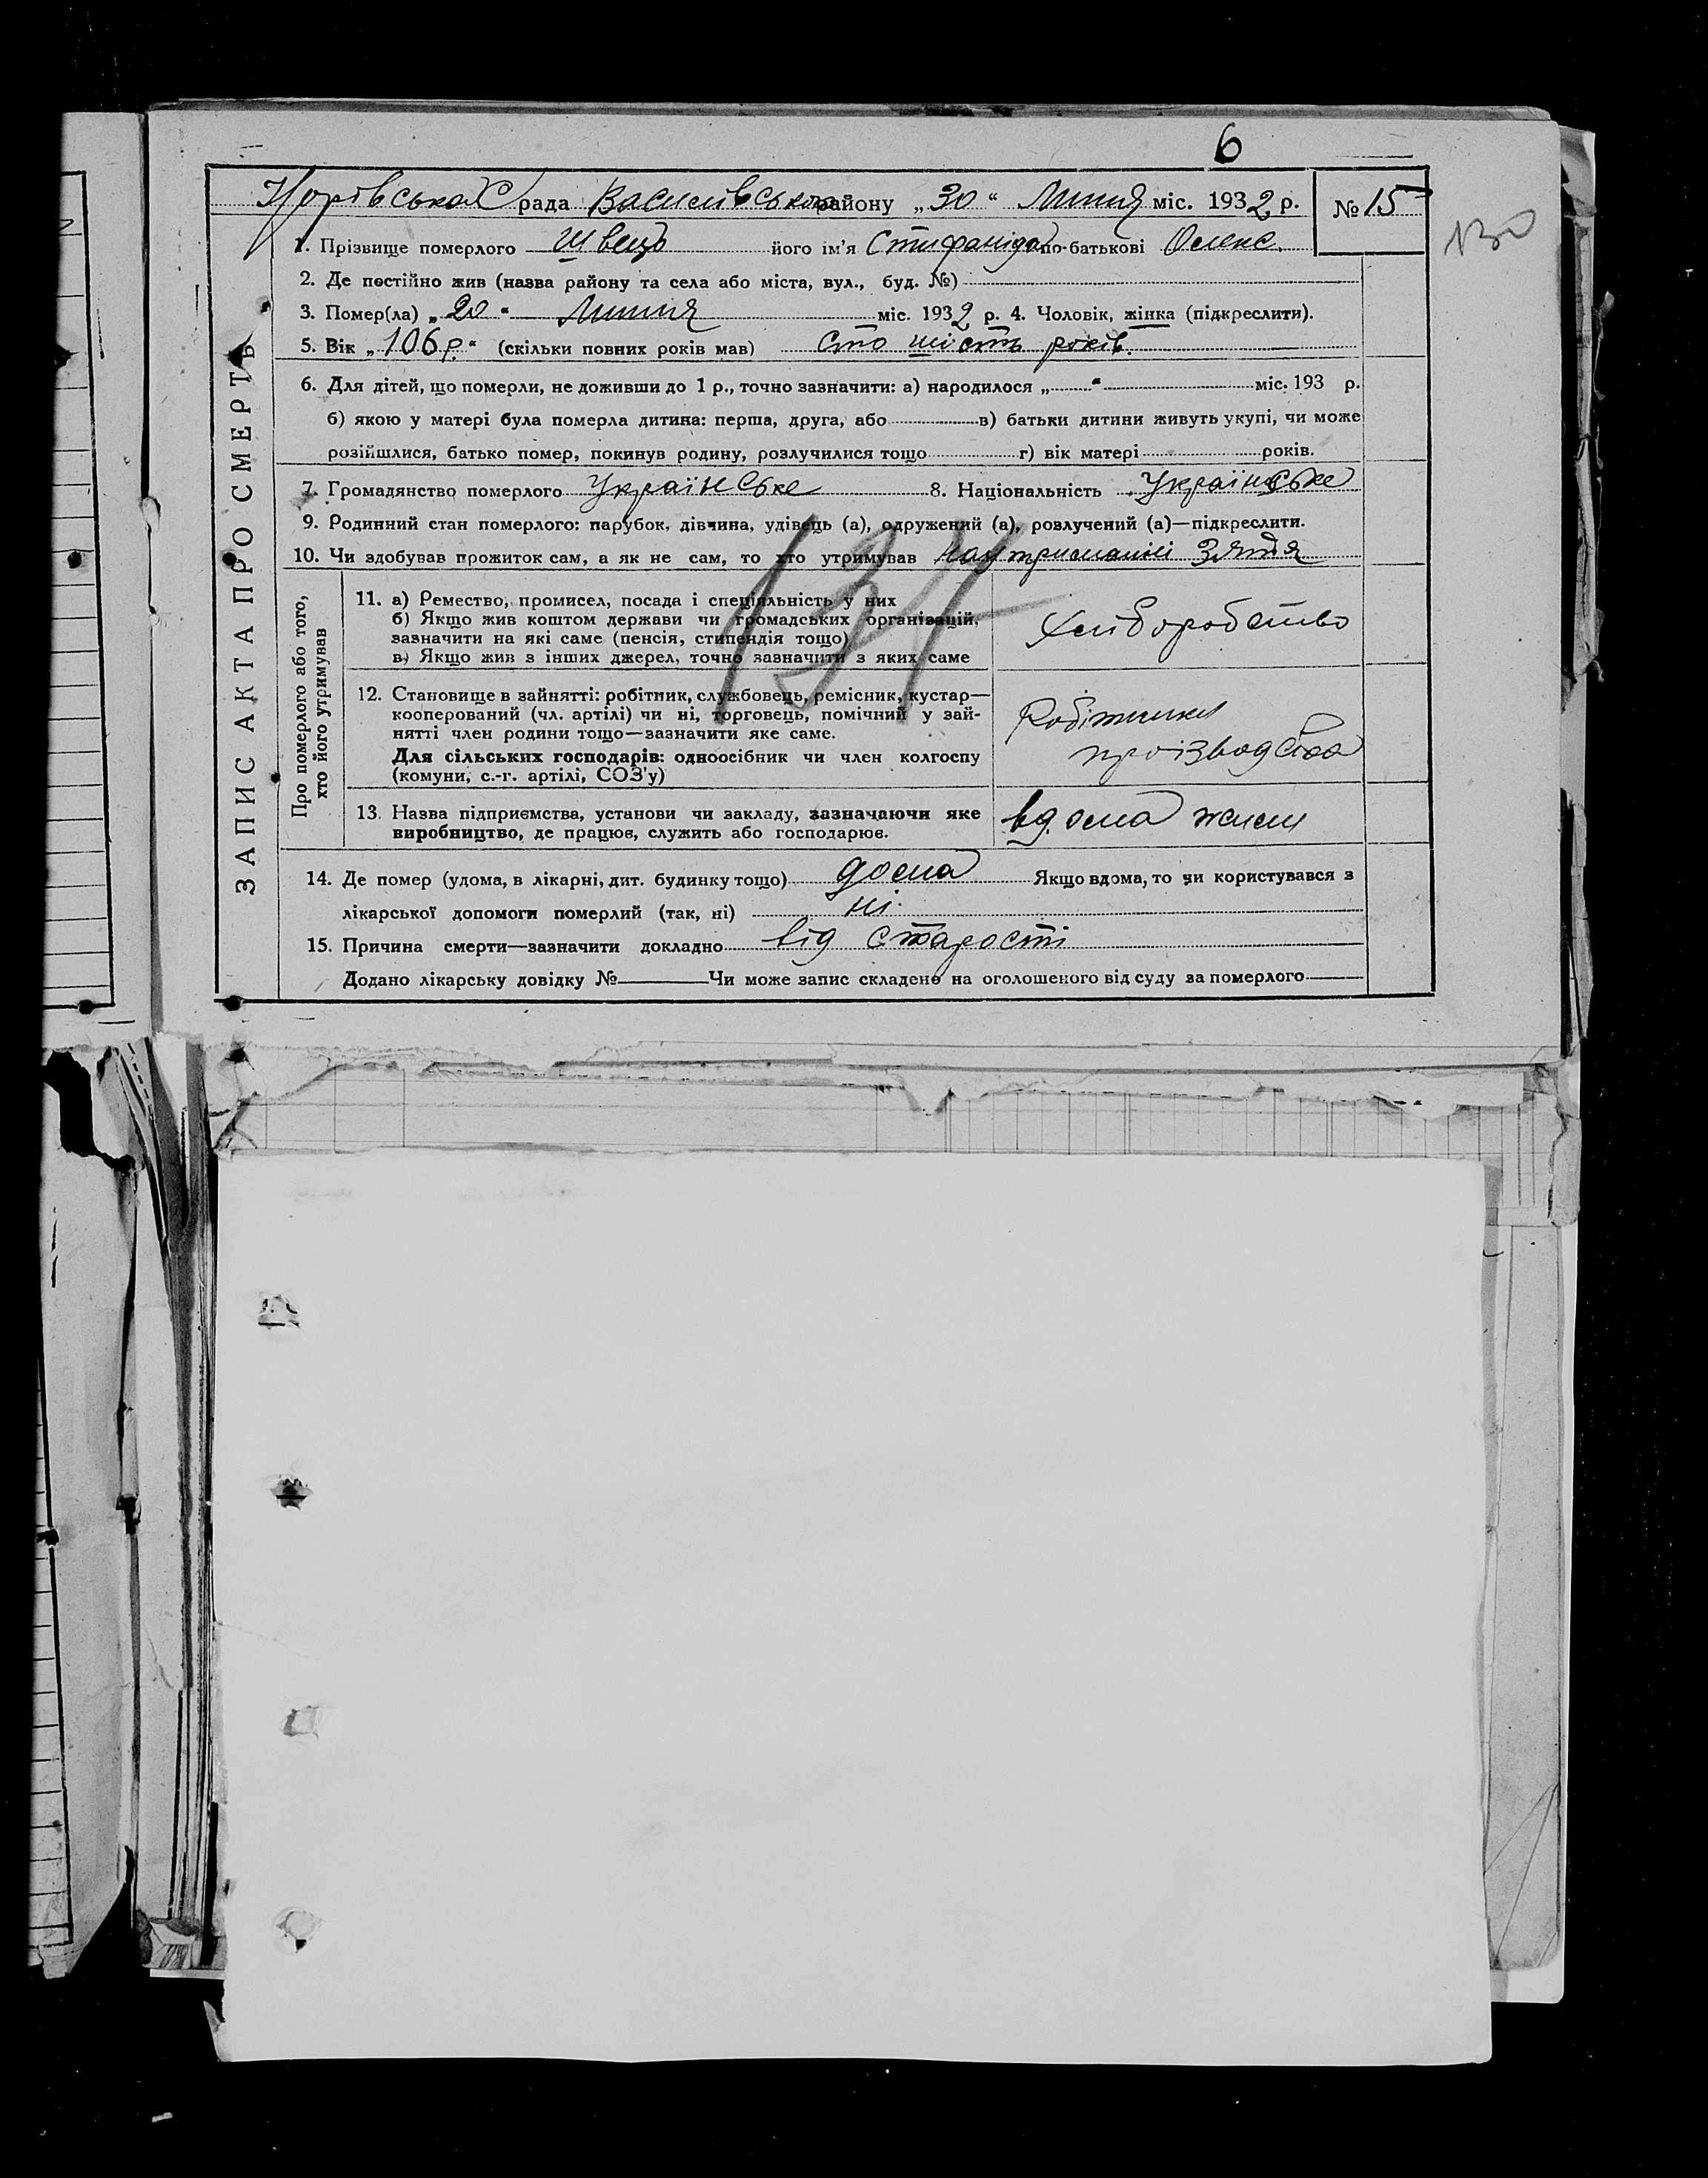 6
рада Василівського району „30“ Липня міс. 1932 р. № 15
130
1. Прізвище померлого Швець його ім'я Стифаніда по-батькові Олекс.
2. Де постійно жив (назва району та села або міста, вул., буд. №)
3. Помер(ла) „20“ Липня міс. 1932 р. 4. Чоловік, жінка (підкреслити).
5. Вік „106 р.“ (скільки повних років мав) сто шість років.
6. Для дітей, що померли, не доживши до 1 р., точно зазначити: а) народилося „ “ міс. 193 р.
б) якою у матері була померла дитина: перша, друга, або в) батьки дитини живуть укупі, чи може
розійшлися, батько помер, покинув родину, розлучилися тощо г) вік матері років.
7. Громадянство померлого Українське 8. Національність Українське
9. Родинний стан померлого: парубок, дівчина, удівець (а), одружений (а), розлучений (а)—підкреслити.
10. Чи здобував прожиток сам, а як не сам, то хто утримував на утриманні Зятя
ЗАПИС АКТА ПРО СМЕРТЬ
Про померлого або того,
хто його утримував
11. а) Ремество, промисел, посада і спеціяльність у них
б) Якщо жив коштом держави чи громадських організацій,
зазначити на які саме (пенсія, стипендія тощо)
в) Якщо жив з інших джерел, точно зазначити з яких саме
Хліборобство
12. Становище в зайнятті: робітник, службовець, ремісник, кустар—
кооперований (чл. артілі) чи ні, торговець, помічний у зай-
нятті член родини тощо—зазначити яке саме.
Для сільських господарів: одноосібник чи член колгоспу
(комуни, с.-г. артілі, СОЗ'у)
Робітники
производства
13. Назва підприємства, установи чи закладу, зазначаючи яке
виробництво, де працює, служить або господарює.
14. Де помер (удома, в лікарні, дит. будинку тощо) дома Якщо вдома, то чи користувався з
лікарської допомоги померлий (так, ні) ні.
15. Причина смерти—зазначити докладно від старості
Додано лікарську довідку № Чи може запис складено на оголошеного від суду за померлого